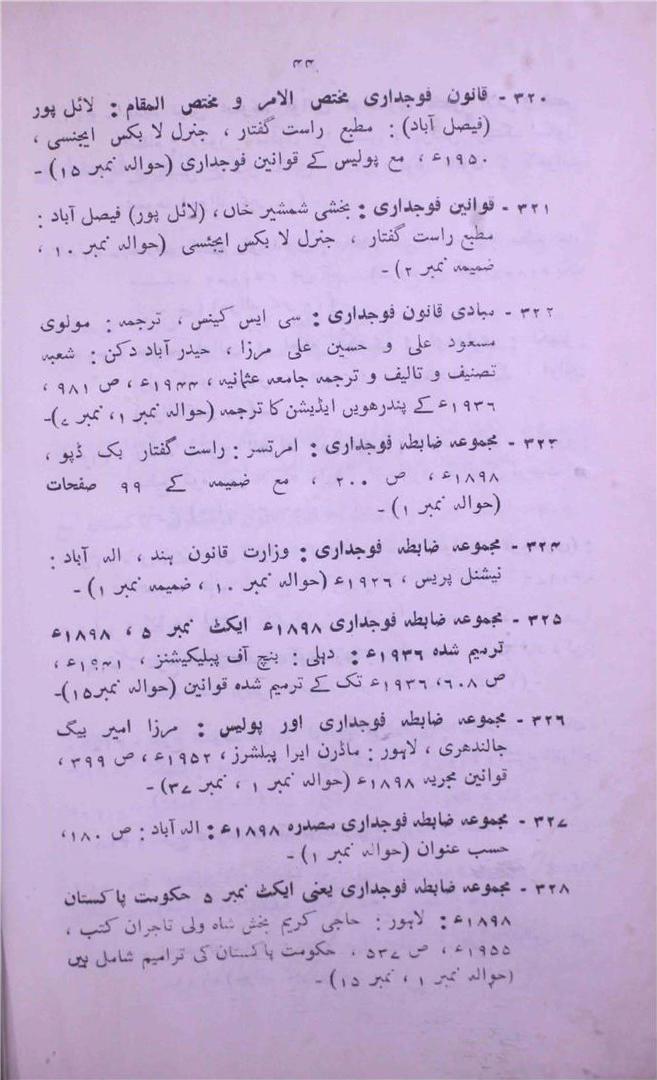 ۴۴
۳۲۰ - قانون فوجداری مختص الامر و مختص المقام : لائل پور
(فیصل آباد) : مطبع راست گفتار ، جنرل لا بکس ایجنسی ،
۱۹۵۰ء ، مع پولیس کے قوانین فوجداری (حوالہ نمبر ۱۵) -
۳۲۱ - قوانین فوجداری : بخشی شمشیر خاں، (لائل پور) فیصل آباد :
مطبع راست گفتار ، جنرل لا بکس ایجنسی (حوالہ نمبر ۱۰ ،
ضمیمہ نمبر ۲) -
۳۲۲ - مبادی قانون فوجداری : سی ایس کینس ، ترجمہ : مولوی
مسعود علی و حسین علی مرزا ، حیدر آباد دکن : شعبہ
تصنیف و تالیف و ترجمہ جامعہ عثمانیہ ، ۱۹۴۴ء ، ص ۹۸۱ ،
۱۹۳۶ء کے پندرھویں ایڈیشن کا ترجمہ (حوالہ نمبر ۱، نمبر ۷) -
۳۲۳ - مجموعہ ضابطہ فوجداری : امرتسر : راست گفتار بک ڈپو ،
۱۸۹۸ء ، ص ۲۰۰ ، مع ضمیمہ کے ۹۹ صفحات
(حوالہ نمبر ۱) -
۳۲۴ - مجموعہ ضابطہ فوجداری : وزارت قانون ہند ، الہ آباد :
نیشنل پریس ، ۱۹۲۶ء (حوالہ نمبر ۱۰ ، ضمیمہ نمبر ۱) -
۳۲۵ - مجموعہ ضابطہ فوجداری ۱۸۹۸ء ایکٹ نمبر ۵ ، ۱۸۹۸ء
ترمیم شدہ ۱۹۳۶ء : دہلی : بنچ آف پبلیکیشنز ، ۱۹۴۱ء ،
ص ۶۰۸ ، ۱۹۳۶ء تک کے ترمیم شدہ قوانین (حوالہ نمبر ۱۵) -
۳۲۶ - مجموعہ ضابطہ فوجداری اور پولیس : مرزا امیر بیگ
جالندھری ، لاہور : ماڈرن ایرا پبلشرز ، ۱۹۵۲ء ، ص ۳۹۹ ،
قوانین مجریہ ۱۸۹۸ء (حوالہ نمبر ۱ ، نمبر ۳۷) -
۳۲۷ - مجموعہ ضابطہ فوجداری مصدرہ ۱۸۹۸ء : الہ آباد : ص ۱۸۰ ،
حسب عنوان (حوالہ نمبر ۱) -
۳۲۸ - مجموعہ ضابطہ فوجداری یعنی ایکٹ نمبر ۵ حکومت پاکستان
۱۸۹۸ء : لاہور : حاجی کریم بخش شاہ ولی تاجران کتب ،
۱۹۵۵ء ، ص ۵۳۷ ، حکومت پاکستان کی ترامیم شامل ہیں
(حوالہ نمبر ۱ ، نمبر ۱۵) -